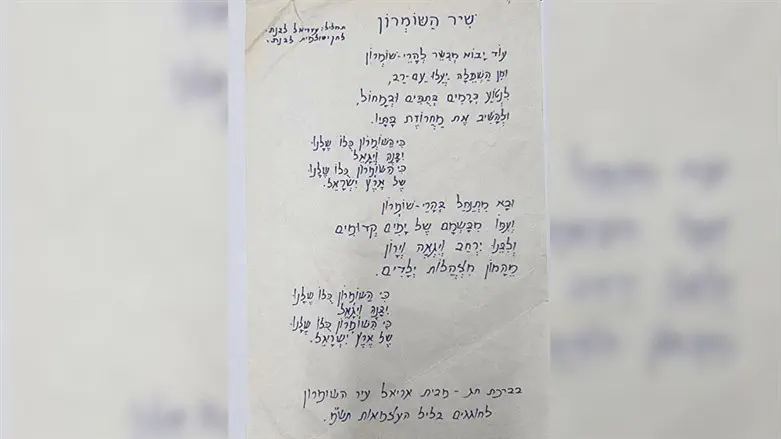 שיר השומרון
תמלילו עזריאל לבנת.
לחן שולמית לבנת.
עוד יבוא מבשר להרי-שומרון
ומן השפלה יעלו עם-רב,
לנטוע כרמים בתפים ובמחול,
ולהשיב את מחרוזת בתיו.
כי השומרון כלו שלנו
יבנה ויגאל
כי השומרון כלו שלנו
של ארץ ישראל.
ובא מתנחל בהרי-שומרון
מבשמם של ימים קדומים
ולבנו ירחב ויגאה וירון
מהמון מצהלות ילדים.
כי השומרון כלו שלנו
יבנה ויגאל
כי השומרון כלו שלנו
של ארץ ישראל.
בברכת חג - מבית אריאל עיר השומרון
לחוגגים בליל העצמאות